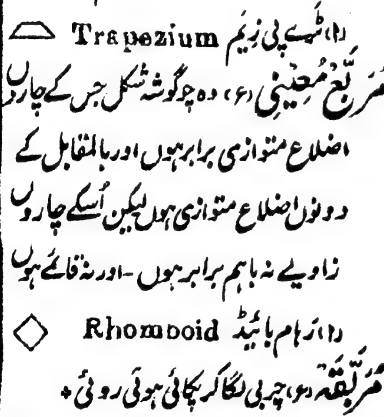 (۱) ٹرے پی زِیَم Trapezium
مُرَبَّع مُعِیْنِی (ع) وہ چوگوشہ شکل جس کے چاروں
اضلاع متوازی برابر ہوں اور بالمقابل کے
دونوں اضلاع متوازی ہوں لیکن اُسکے چاروں
زاویے نہ باہم برابر ہوں - اور نہ قائمے ہوں
(۱) رَہام بائیڈ Rhomboid
مُرَبَّقَہ (ع) چربی لگا کر پکائی ہوئی روٹی +